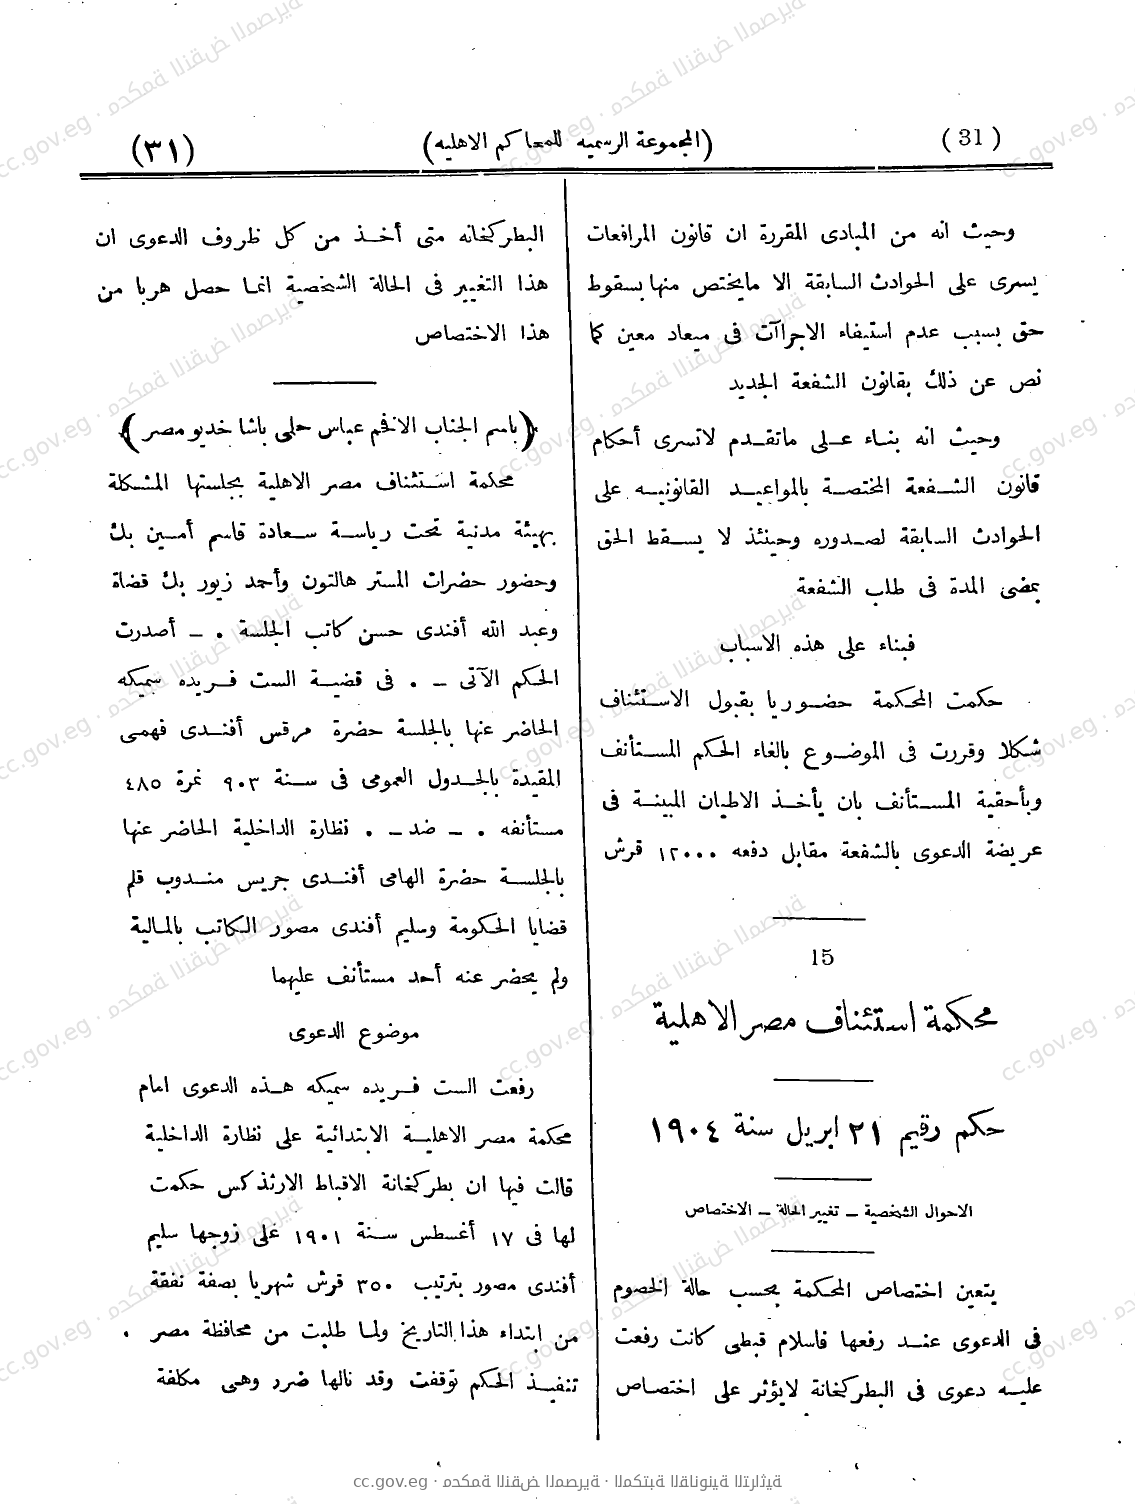 (31)
(المجموعة الرسميه للمحاكم الاهليه)
(٣١)
وحيث انه من المبادى المقررة ان قانون المرافعات
يسرى على الحوادث السابقة الا مايختص منها بسقوط
حق بسبب عدم استيفاء الاجراآت فى ميعاد معين كما
نص عن ذلك بقانون الشفعة الجديد
وحيث انه بناء على ماتقدم لاتسرى أحكام
قانون الشفعة المختصة بالمواعيد القانونيه على
الحوادث السابقة لصدوره وحينئذ لا يسقط الحق
بمضى المدة فى طلب الشفعة
فبناء على هذه الاسباب
حكمت المحكمة حضوريا بقبول الاستئناف
شكلا وقررت فى الموضوع بالغاء الحكم المستأنف
وبأحقية المستأنف بان يأخذ الاطيان المبينة فى
عريضة الدعوى بالشفعة مقابل دفعه ١٢٠٠٠ قرش
15
محكمة استئناف مصر الاهلية
حكم رقيم ٢١ ابريل سنة ١٩٠٤
الاحوال الشخصية – تغيير الحالة – الاختصاص
يتعين اختصاص المحكمة بحسب حالة الخصوم
فى الدعوى عند رفعها فاسلام قبطى كانت رفعت
عليه دعوى فى البطركخانة لايؤثر على اختصاص
البطركخانه متى أخذ من كل ظروف الدعوى ان
هذا التغيير فى الحالة الشخصية انما حصل هربا من
هذا الاختصاص
(باسم الجناب الافخم عباس حلمى باشا خديو مصر)
محكمة استئناف مصر الاهلية بجلستها المشكلة
بهيئة مدنية تحت رياسة سعادة قاسم أمين بك
وحضور حضرات المستر هالتون وأحمد زيور بك قضاة
وعبد الله أفندى حسن كاتب الجلسة . – أصدرت
الحكم الآتى – . فى قضية الست فريده سميكه
الحاضر عنها بالجلسة حضرة مرقس أفندى فهمى
المقيدة بالجدول العمومى فى سنة ٩٠٣ نمرة ٤٨٥
مستأنفه . – ضد – . نظارة الداخلية الحاضر عنها
بالجلسة حضرة الهامى أفندى جريس مندوب قلم
قضايا الحكومة وسليم أفندى مصور الكاتب بالمالية
ولم يحضر عنه أحد مستأنف عليهما
موضوع الدعوى
رفعت الست فريده سميكه هذه الدعوى امام
محكمة مصر الاهلية الابتدائية على نظارة الداخلية
قالت فيها ان بطركخانة الاقباط الارثذكس حكمت
لها فى ١٧ أغسطس سنة ١٩٠١ على زوجها سليم
أفندى مصور بترتيب ٣٥٠ قرش شهريا بصفة نفقة
من ابتداء هذا التاريخ ولما طلبت من محافظة مصر .
تنفيذ الحكم توقفت وقد نالها ضرر وهى مكلفة
cc.gov.eg · محكمة النقض المصرية · المكتبة القانونية التراثية